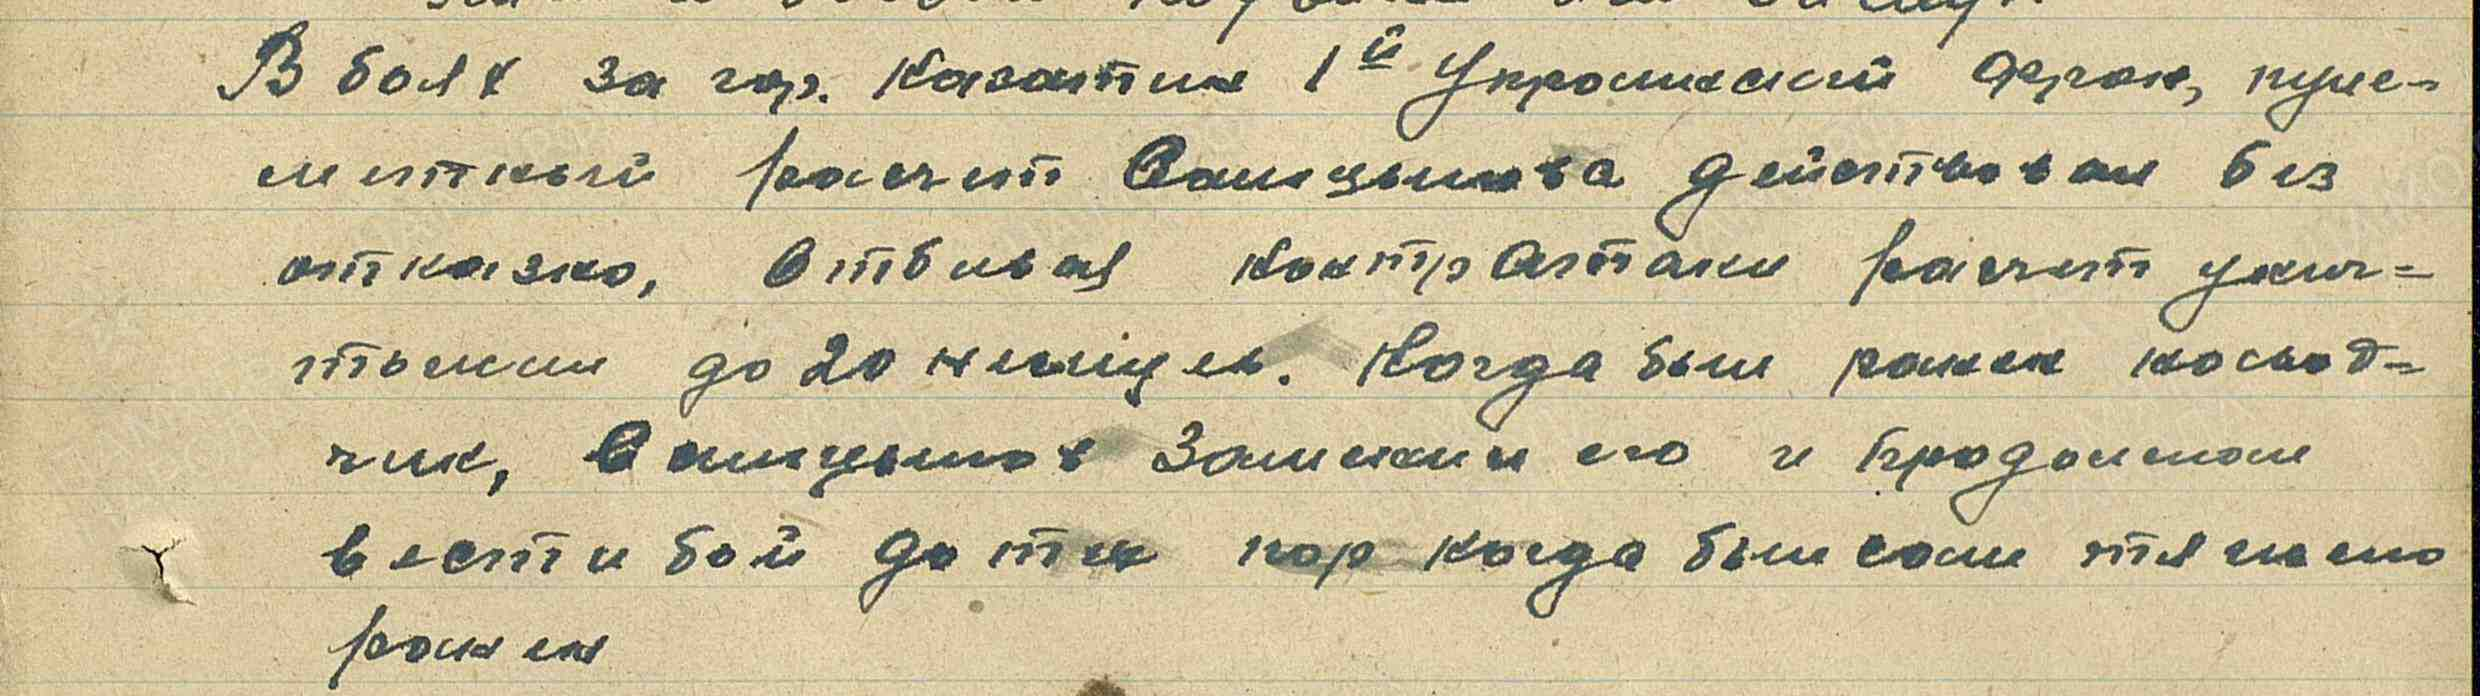 В боях за гор. Казатин 1й Украинский фрон, пуле-
метный расчет действовал без
отказно, Отбивая контратаки расчет унич-
тожил до 20 немцев. Когда был ранен навод-
чик, заменил его и продолжал
вести бой до тех пор когда был сам тяжело
ранен